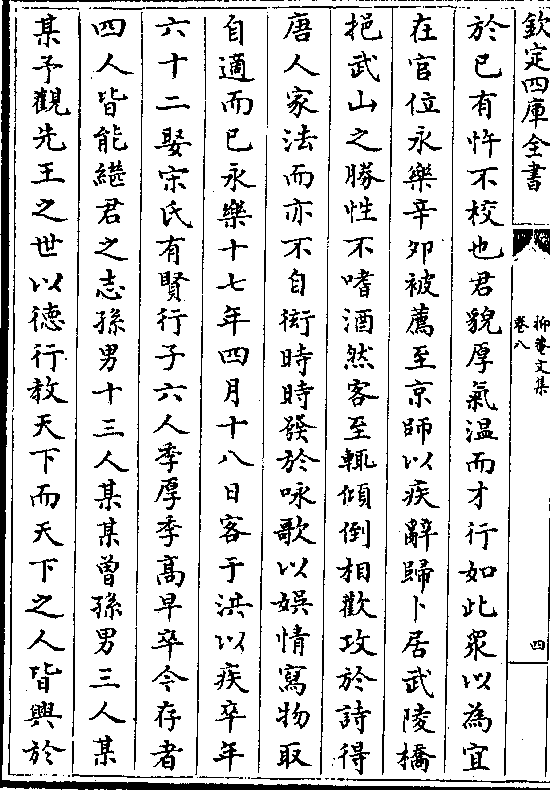 欽定四庫全書
抑菴文集
卷八
四
於已有忤不校也君貌厚氣溫而才行如此眾以為宜
在官位永樂辛夘被薦至京師以疾辭歸卜居武陵橋
挹武山之勝性不嗜酒然客至輒傾倒相歡攻於詩得
唐人家法而亦不自衒時時發於咏歌以娯情寫物取
自適而已永樂十七年四月十八日客于洪以疾卒年
六十二娶宋氏有賢行子六人季厚季髙早卒今存者
四人皆能繼君之志孫男十三人某某曽孫男三人某
某予觀先王之世以徳行教天下而天下之人皆興於